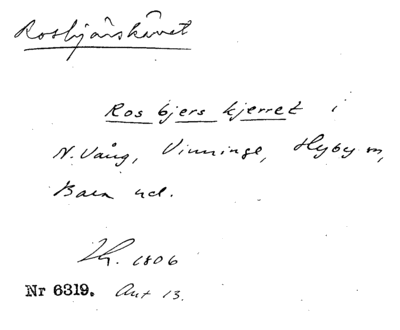 Rosbjärskärret
Ros bjers kjerret i
N. Vång, Vinninge, Hyby m,
Bara hd.
Lh. 1806
Nr 6319. Art 13.